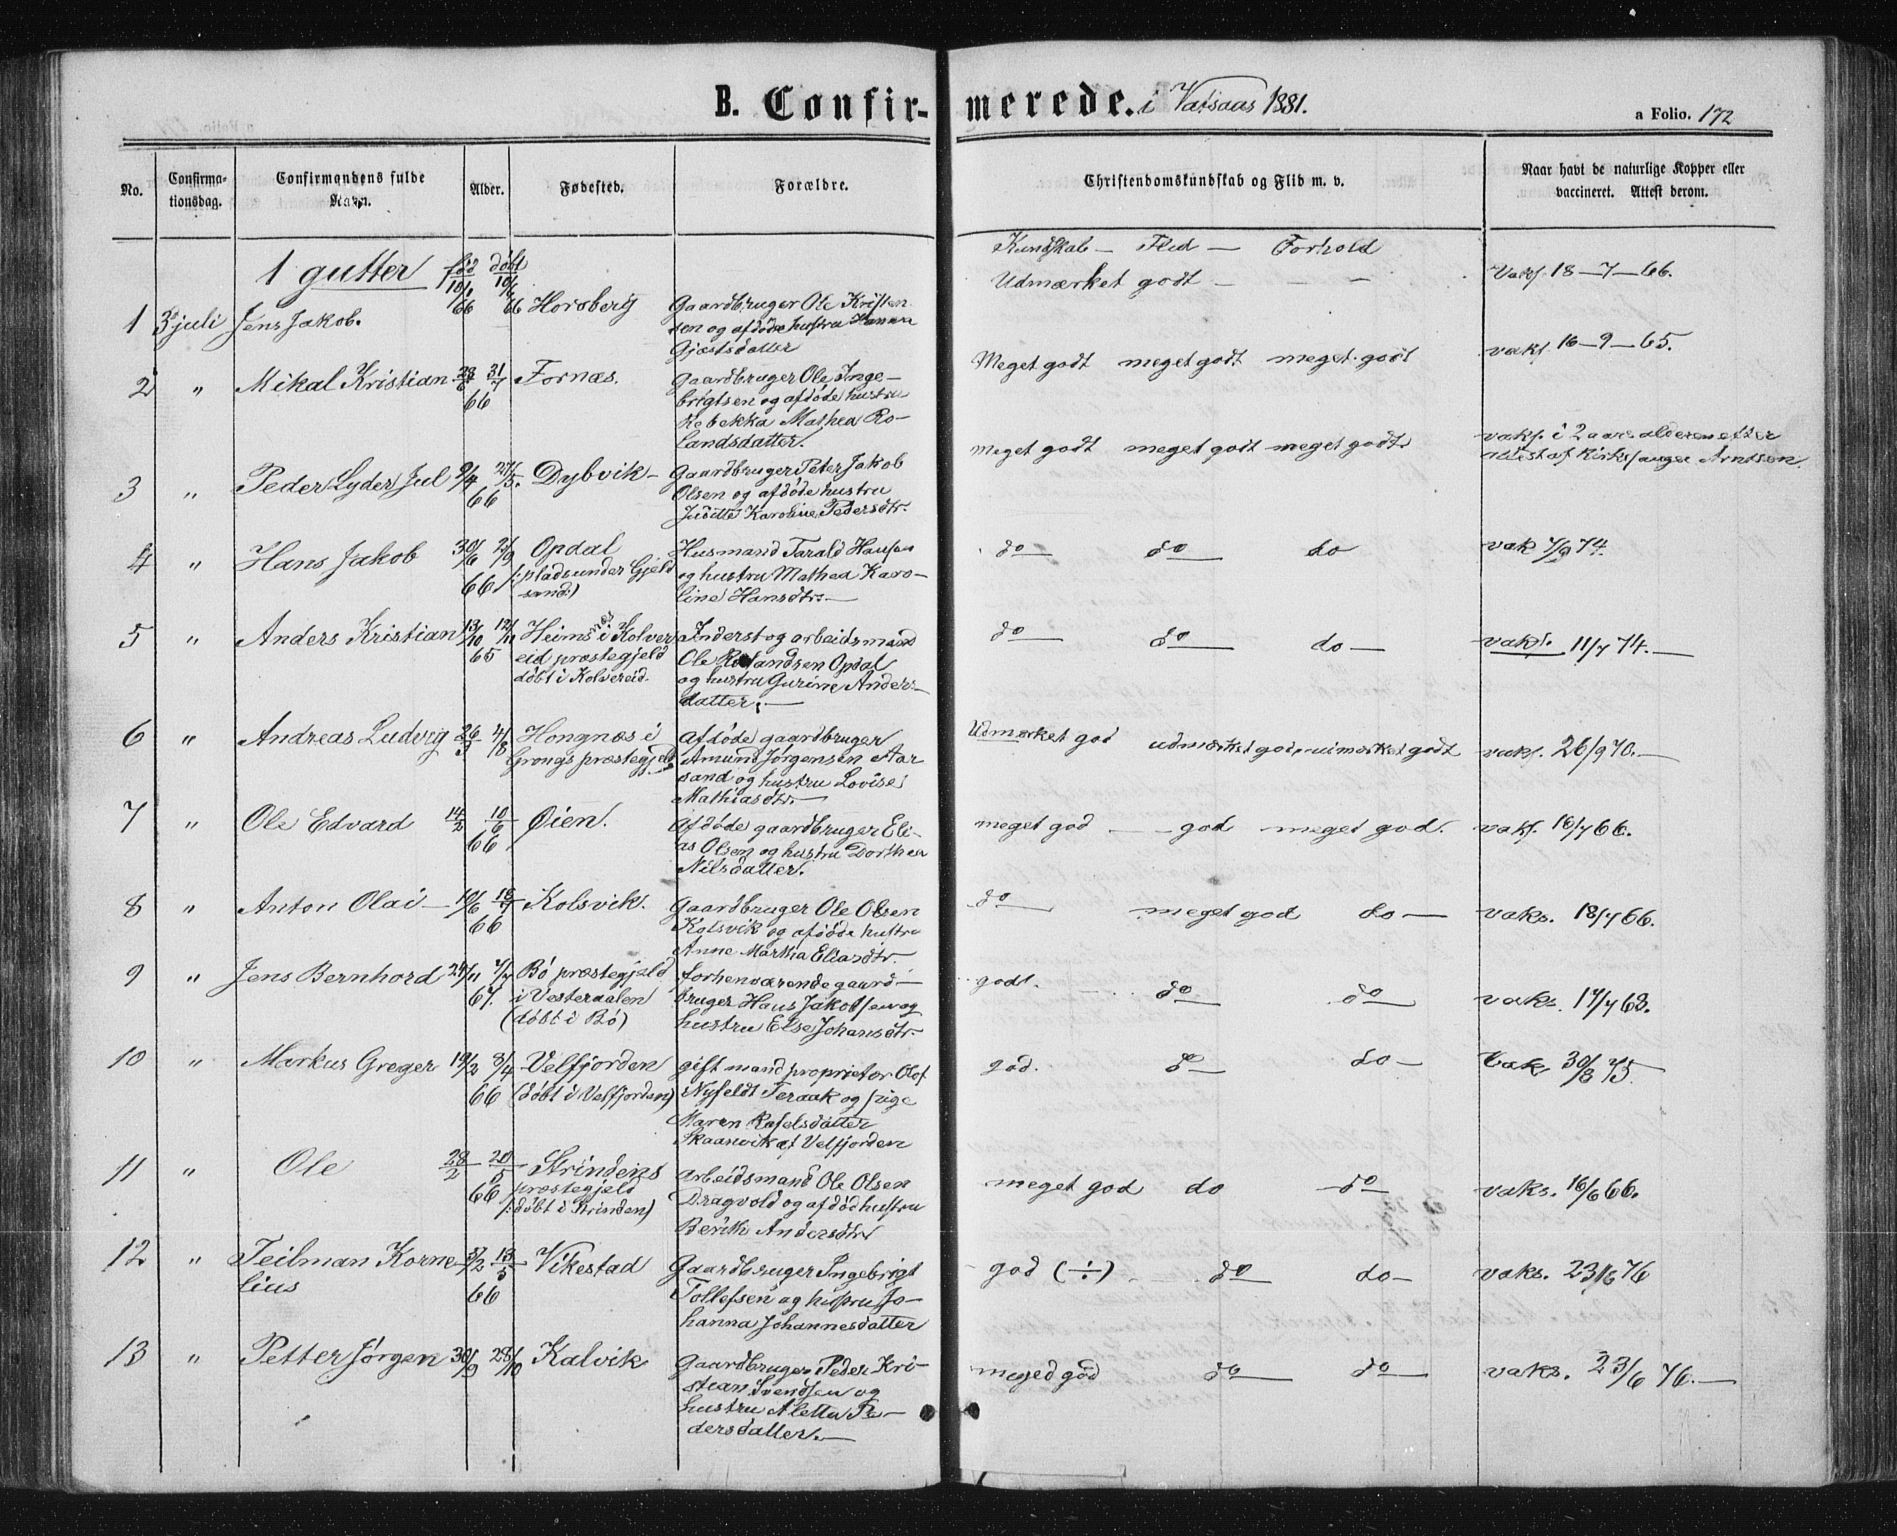 B. Confirmerede. i Vassaas 1881.
a Folio. 172
No.
Confirma-
tionsdag.
Confirmandens fulde
Navn.
Alder.
Fødested.
Forældre.
Christendomskundskab og Flid m. v.
Naar havt de naturlige Kopper eller
vaccineret. Attest derom.
1 gutter
fød døbt
Kundskab — Flid — Forhold
1 3 juli Jens Jakob. 10/1 10/6 66 66 Horsberg
Gaardbruger Ole Kristen
sen og afdøde hustru Hanna
Gjæstsdatter
Udmærket godt — — —
Vaks. 18-7-66.
2 " Mikal Kristian 28/6 31/7 66 Fornæs.
gaardbruger Ole Inge-
brigtsen og afdøde hustru
Rebekka Mathea Ro-
landsdatter.
Meget godt meget godt meget godt
vaks. 16-9-65.
3 " Peder Lyder Jul 9/4 27/5. 66 Dybvik —
Gaardbruger Peter Jakob
Olsen og afdøde hustru
Juditte Karoline Pedersdtr.
meget godt meget godt meget godt
vaks. i 2 aars alderen efter
attest af Kirkesanger Arntsen.
4 " Hans Jakob 30/6 2/9 66
Opdal
(: plads under Gjeld
sand:)
Husmand Tarald Hansen
og hustru Mathea Karo-
line Hansdtr —
do do do
vak 7/9 74.
5 " Anders Kristian 13/10 12/11 65
Heimsnes i Kolver
eid præstegjeld
døbt i Kolvereid.
Inderst og arbeidsmand
Ole Rolandsen Opdal
og hustru Gurine Anders-
datter. —
do do do —
vaks. 11/7 74. —
6 " Andreas Ludvig 26/3 4/8
Hongnæs i
Grongs præstegjeld
Afdøde gaardbruger
Amund Jørgensen Aar
sand og hustru Lovise
Mathiasdtr. —
Udmærket god udmærket god udmærket godt
vaks. 26/9 70. —
7 " Ole Edvard 14/2 10/6 66 Øien.
Afdøde gaardbruger Eli-
as Olsen og hustru Dorthea
Nilsdatter.
meget god — god meget god.
vaks. 16/7 66.
8 " Anton Olai — 10/6 18/7 66 Kolsvik.
Gaardbruger Ole Olsen
Kolsvik og afdøde hustru
Anne Martha Eliasdtr.
do meget god do —
vaks. 18/7 66.
9 " Jens Bernhord 24/11 7/7 67.
Bø præstegjeld
i Vesteraalen
(døbt i Bø)
forhenværende gaard-
bruger Hans Jakobsen og
hustru Else Johansdtr.
godt. do do
vaks. 17/7 68.
10 " Markus Greger 19/2 8/4 66
Velfjorden
(døbt i Velfjorden)
gift mand proprietær Olof
Nyfeldt Teraak og pige
Maren Rafelsdatter
Skaanvik af Velfjorden
god. do do —
Vak. 30/8 75.
11 " Ole 28/2 20/5 66
Strindens
præstegjeld
(: døbt i Strinden)
Arbeidsmand Ole Olsen
Dragvold og afdød hustru
Berith Andersdtr
meget god do do
vaks. 16/6 66.
12 " Teilman Korne- 5/2 13/5 66 Vikestad
lius
Gaardbruger Ingebrigt
Tollefsen og hustru Jo-
hanna Johannesdatter
god (÷) do do —
vaks. 23/6 76
13 " Petter Jørgen 30/9 28/10 Kalvik
Gaardbruger Peder Kri-
stian Svendsen og
hustru Aletta Pe-
dersdatter. —
meged god do do —
vaks. 23/6 76. —